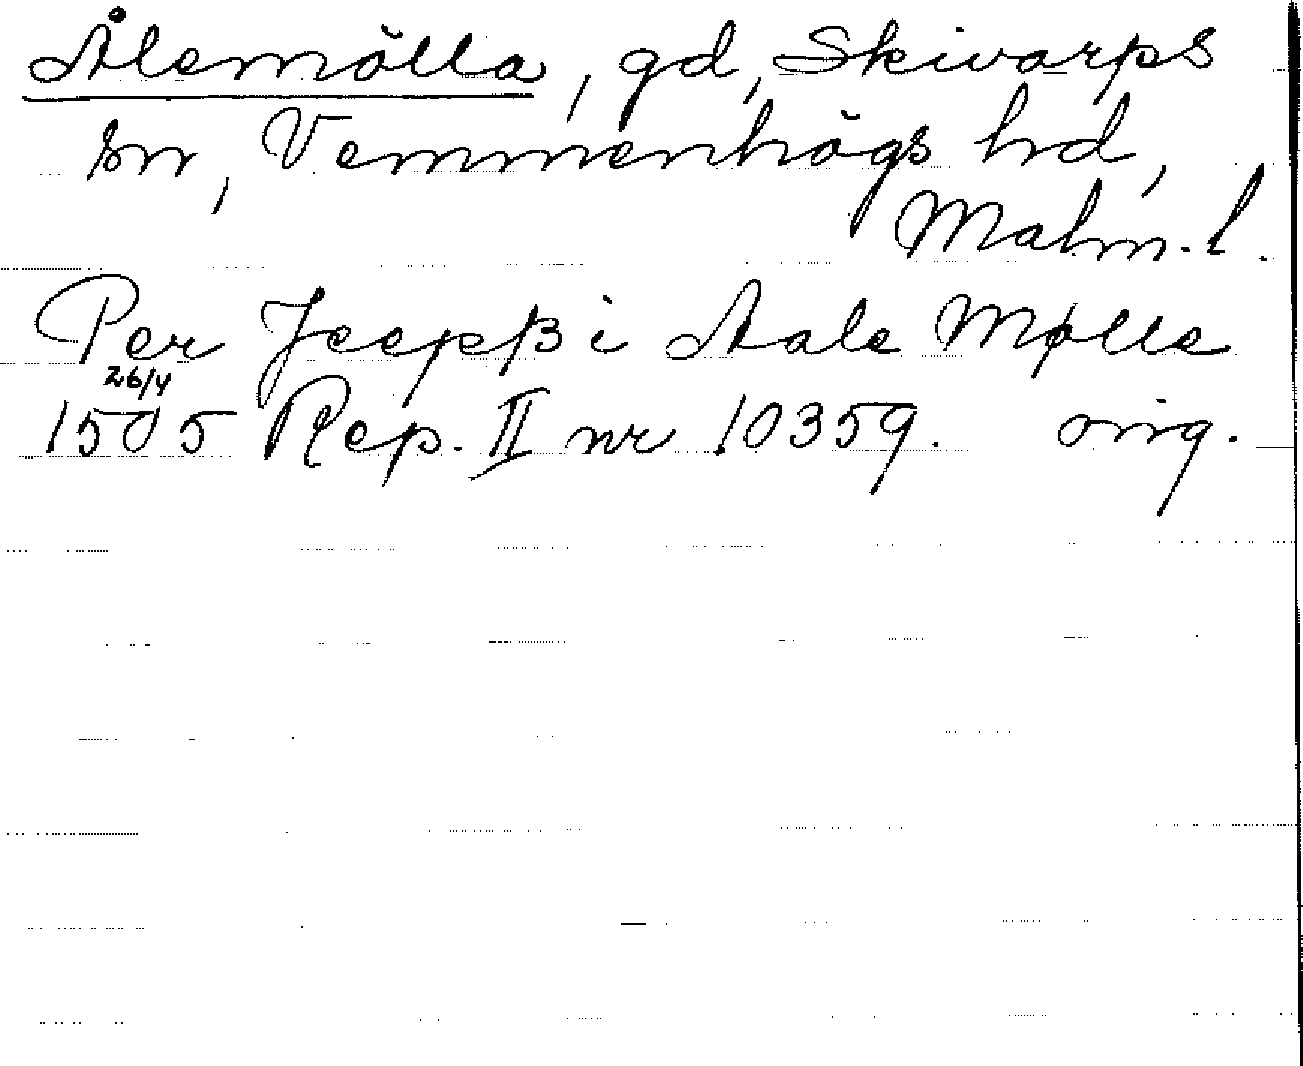 Ålemölla, gd, Skivarps
sn, Vemmenhögs hd,
Malm. l.
Per Jeepß i Aale Mølle
26/4
1505 Rep. II nr 10359. orig.